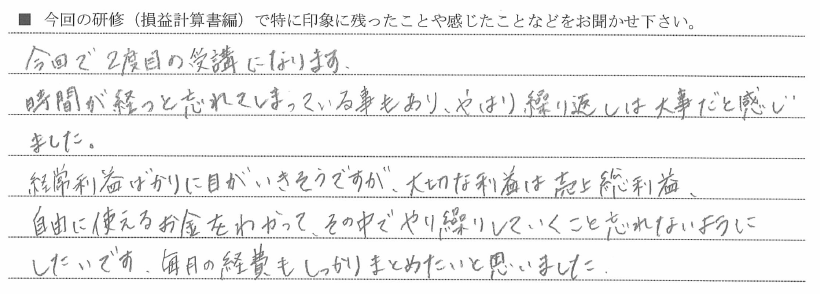 ■ 今回の研修（損益計算書編）で特に印象に残ったことや感じたことなどをお聞かせ下さい。
今回で2度目の受講になります。
時間が経つと忘れてしまっている事もあり、やはり繰り返しは大事だと感じ
ました。
経常利益ばかりに目がいきそうですが、大切な利益は売上総利益、
自由に使えるお金をわかって、その中でやり繰りしていくこと忘れないように
したいです。毎月の経費もしっかりまとめたいと思いました。